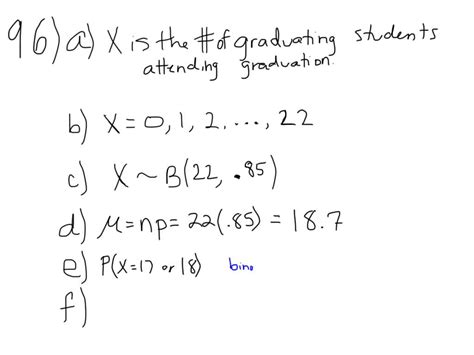 96) a) X is the # of graduating students
attending graduation.
b) X = 0, 1, 2, ..., 22
c) X ~ B(22, .85)
d) μ = np = 22(.85) = 18.7
e) P(X=17 or 18) bino
f)